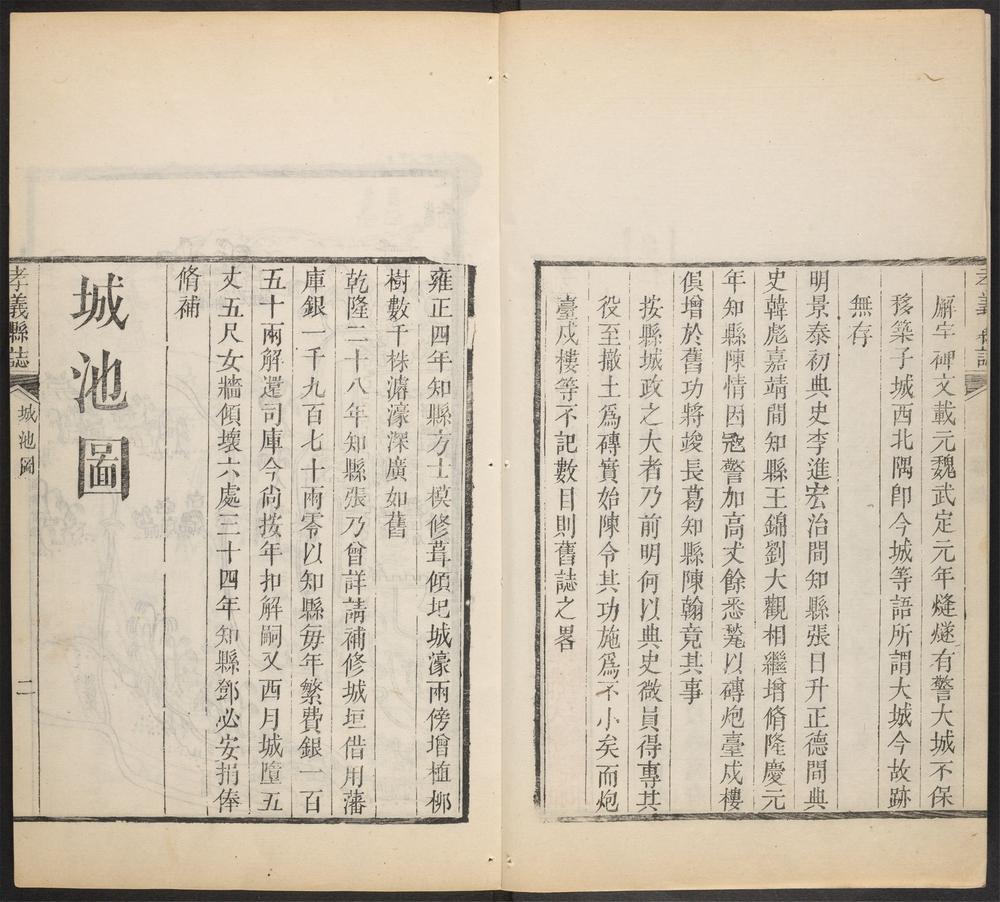 廨宇碑文載元魏武定元年燧燧有警大城不保
移築子城西北隅卽今城等語所謂大城今故跡
無存
明景泰初典史李進宏治間知縣張日升正德間典
史韓彪嘉靖間知縣王錦劉大觀相繼增脩隆慶元
年知縣陳情因冦警加高丈餘悉甃以磚炮臺戍樓
俱增於舊功將竣長葛知縣陳翰竟其事
按縣城政之大者乃前明何以典史微員得專其
役至撤土爲磚實始陳令其功施爲不小矣而炮
臺戍樓等不記數目則舊誌之畧
雍正四年知縣方士模修葺傾圮城濠兩傍增植柳
樹數千株濬濠深廣如舊
乾隆二十八年知縣張乃曾詳請補修城垣借用藩
庫銀一千九百七十兩零以知縣每年繁費銀一百
五十兩解還司庫今尙按年扣解嗣又酉月城墮五
丈五尺女牆傾壞六處三十四年知縣鄧必安捐俸
脩補
城池圖
孝義縣誌
城池圖
二